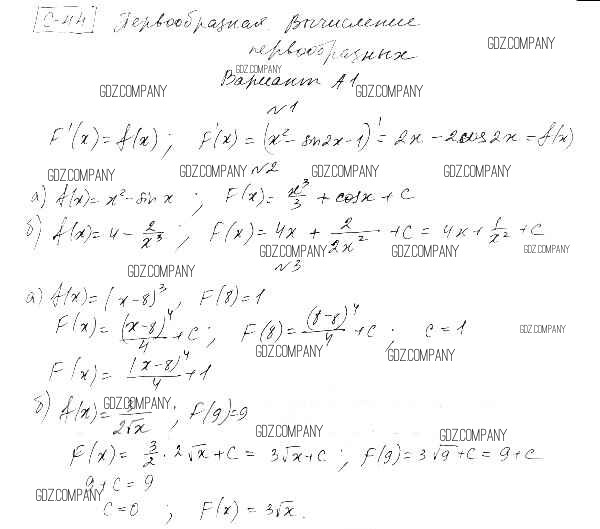 С-44 Первообразная Вычисление
первообразных
GDZ.COMPANY
GDZ.COMPANY
Вариант А1
GDZ.COMPANY GDZ.COMPANY
№1
F'(x)=f(x); F'(x)=(x²-sin2x-1)'=2x-2cos2x=f(x)
GDZ.COMPANY GDZ.COMPANY №2 GDZ.COMPANY GDZ.COMPANY
а) f(x)=x²-sin x; F(x)=x³/3+cosx+C
б) f(x)=4-2/x³; F(x)=4x+2/2x²+C=4x+1/x²+C
GDZ.COMPANY GDZ.COMPANY GDZ.COMPANY
GDZ.COMPANY №3
а) f(x)=(x-8)³, F(8)=1
F(x)=(x-8)⁴/4+C; F(8)=(8-8)⁴/4+C; C=1
GDZ.COMPANY GDZ.COMPANY GDZ.COMPANY
F(x)=(x-8)⁴/4+1
б) f(x)=3/2√x; F(9)=9
GDZ.COMPANY
GDZ.COMPANY GDZ.COMPANY
F(x)=3/2·2√x+C=3√x+C; F(9)=3√9+C=9+C
9+C=9
GDZ.COMPANY
C=0; F(x)=3√x.
GDZ.COMPANY GDZ.COMPANY